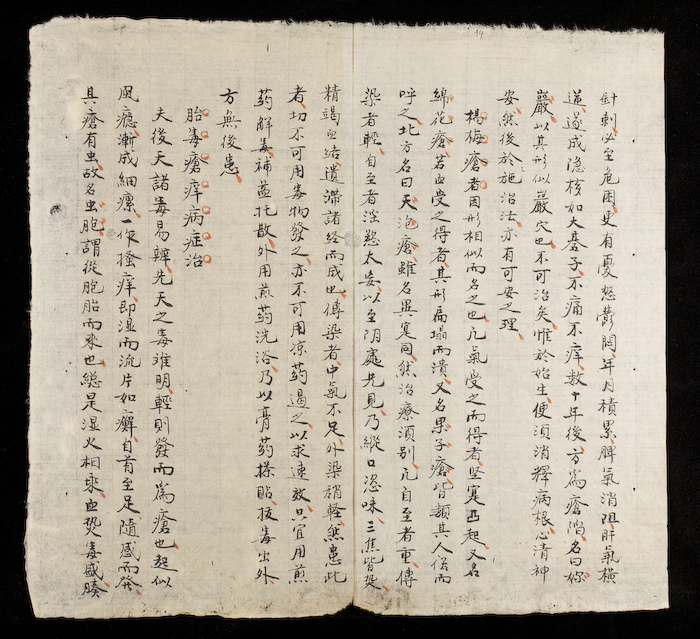 針刺必至危困更有憂怒鬱悶年月積累脾氣消阻肝氣橫
逆遂成隐核如大棊子不痛不痒数十年後方為瘡陷名曰妳
巖以其形似巖穴也不可治矣惟於始生便須消釋病根心清神
安然後於施治法亦有可安之理
楊梅瘡者因形相似而名之也凡氣受之而得者坚寔凸起又名
綿花瘡若血受之得者其形扁塌而潰又名果子瘡皆類其人俗而
呼之北方名曰天泡瘡雖名異寔同然治療須别凡自至者重傳
染者輕自至者淫慾太妄以至阴處先見乃縱口恣味三焦皆𤍠
精竭血結遺滯諸经而成也傳染者中氣不足外染稍輕無患此
者切不可用毒物發之亦不可用凉药遏之以求速放只宜用煎
药解毒補益托散外用煎药洗浴乃以膏药搽貼拔毒出外
方無後患
胎毒瘡痒病症治
夫後天諸毒易辨先天之毒难明輕則發而為瘡也起似
風癮漸成細瘰一作搔痒即湿而流片如癬自首至足隨感而發
具瘡有虫故名虫胞謂從胞胎而來也縂是湿火相乘血𤍠毒盛腠